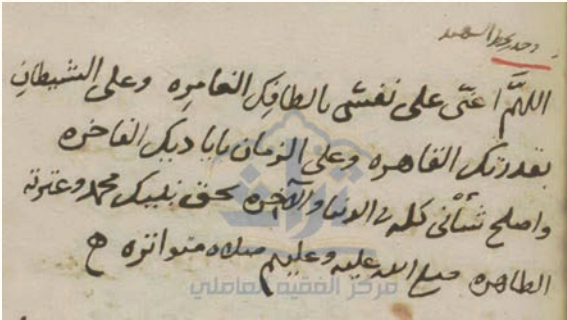 وجد بخط الشهيد
اللهم اعني على نفسي بالطافك الغامره وعلى الشيطان
بقدرتك القاهره وعلى الزمان باياديك الفاخره
واصلح شأني كله في الدنيا والآخره بحق نبيك محمد وعترته
الطاهره صلى الله عليه وعليهم صلاه متواتره
تراث
مركز الفقيه العاملي